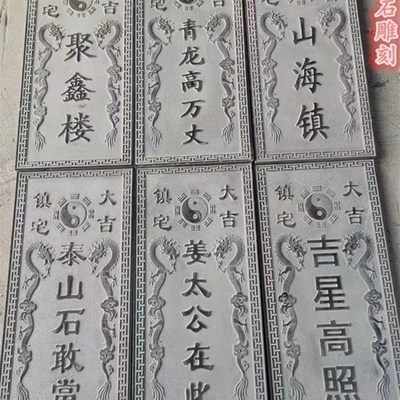 宅
吉
聚鑫楼
宅
吉
青龙高万丈
宅
山海镇
石雕刻
鎮宅
大吉
泰山石敢當
鎮宅
大吉
姜太公在此
鎮宅
大吉
吉星高照